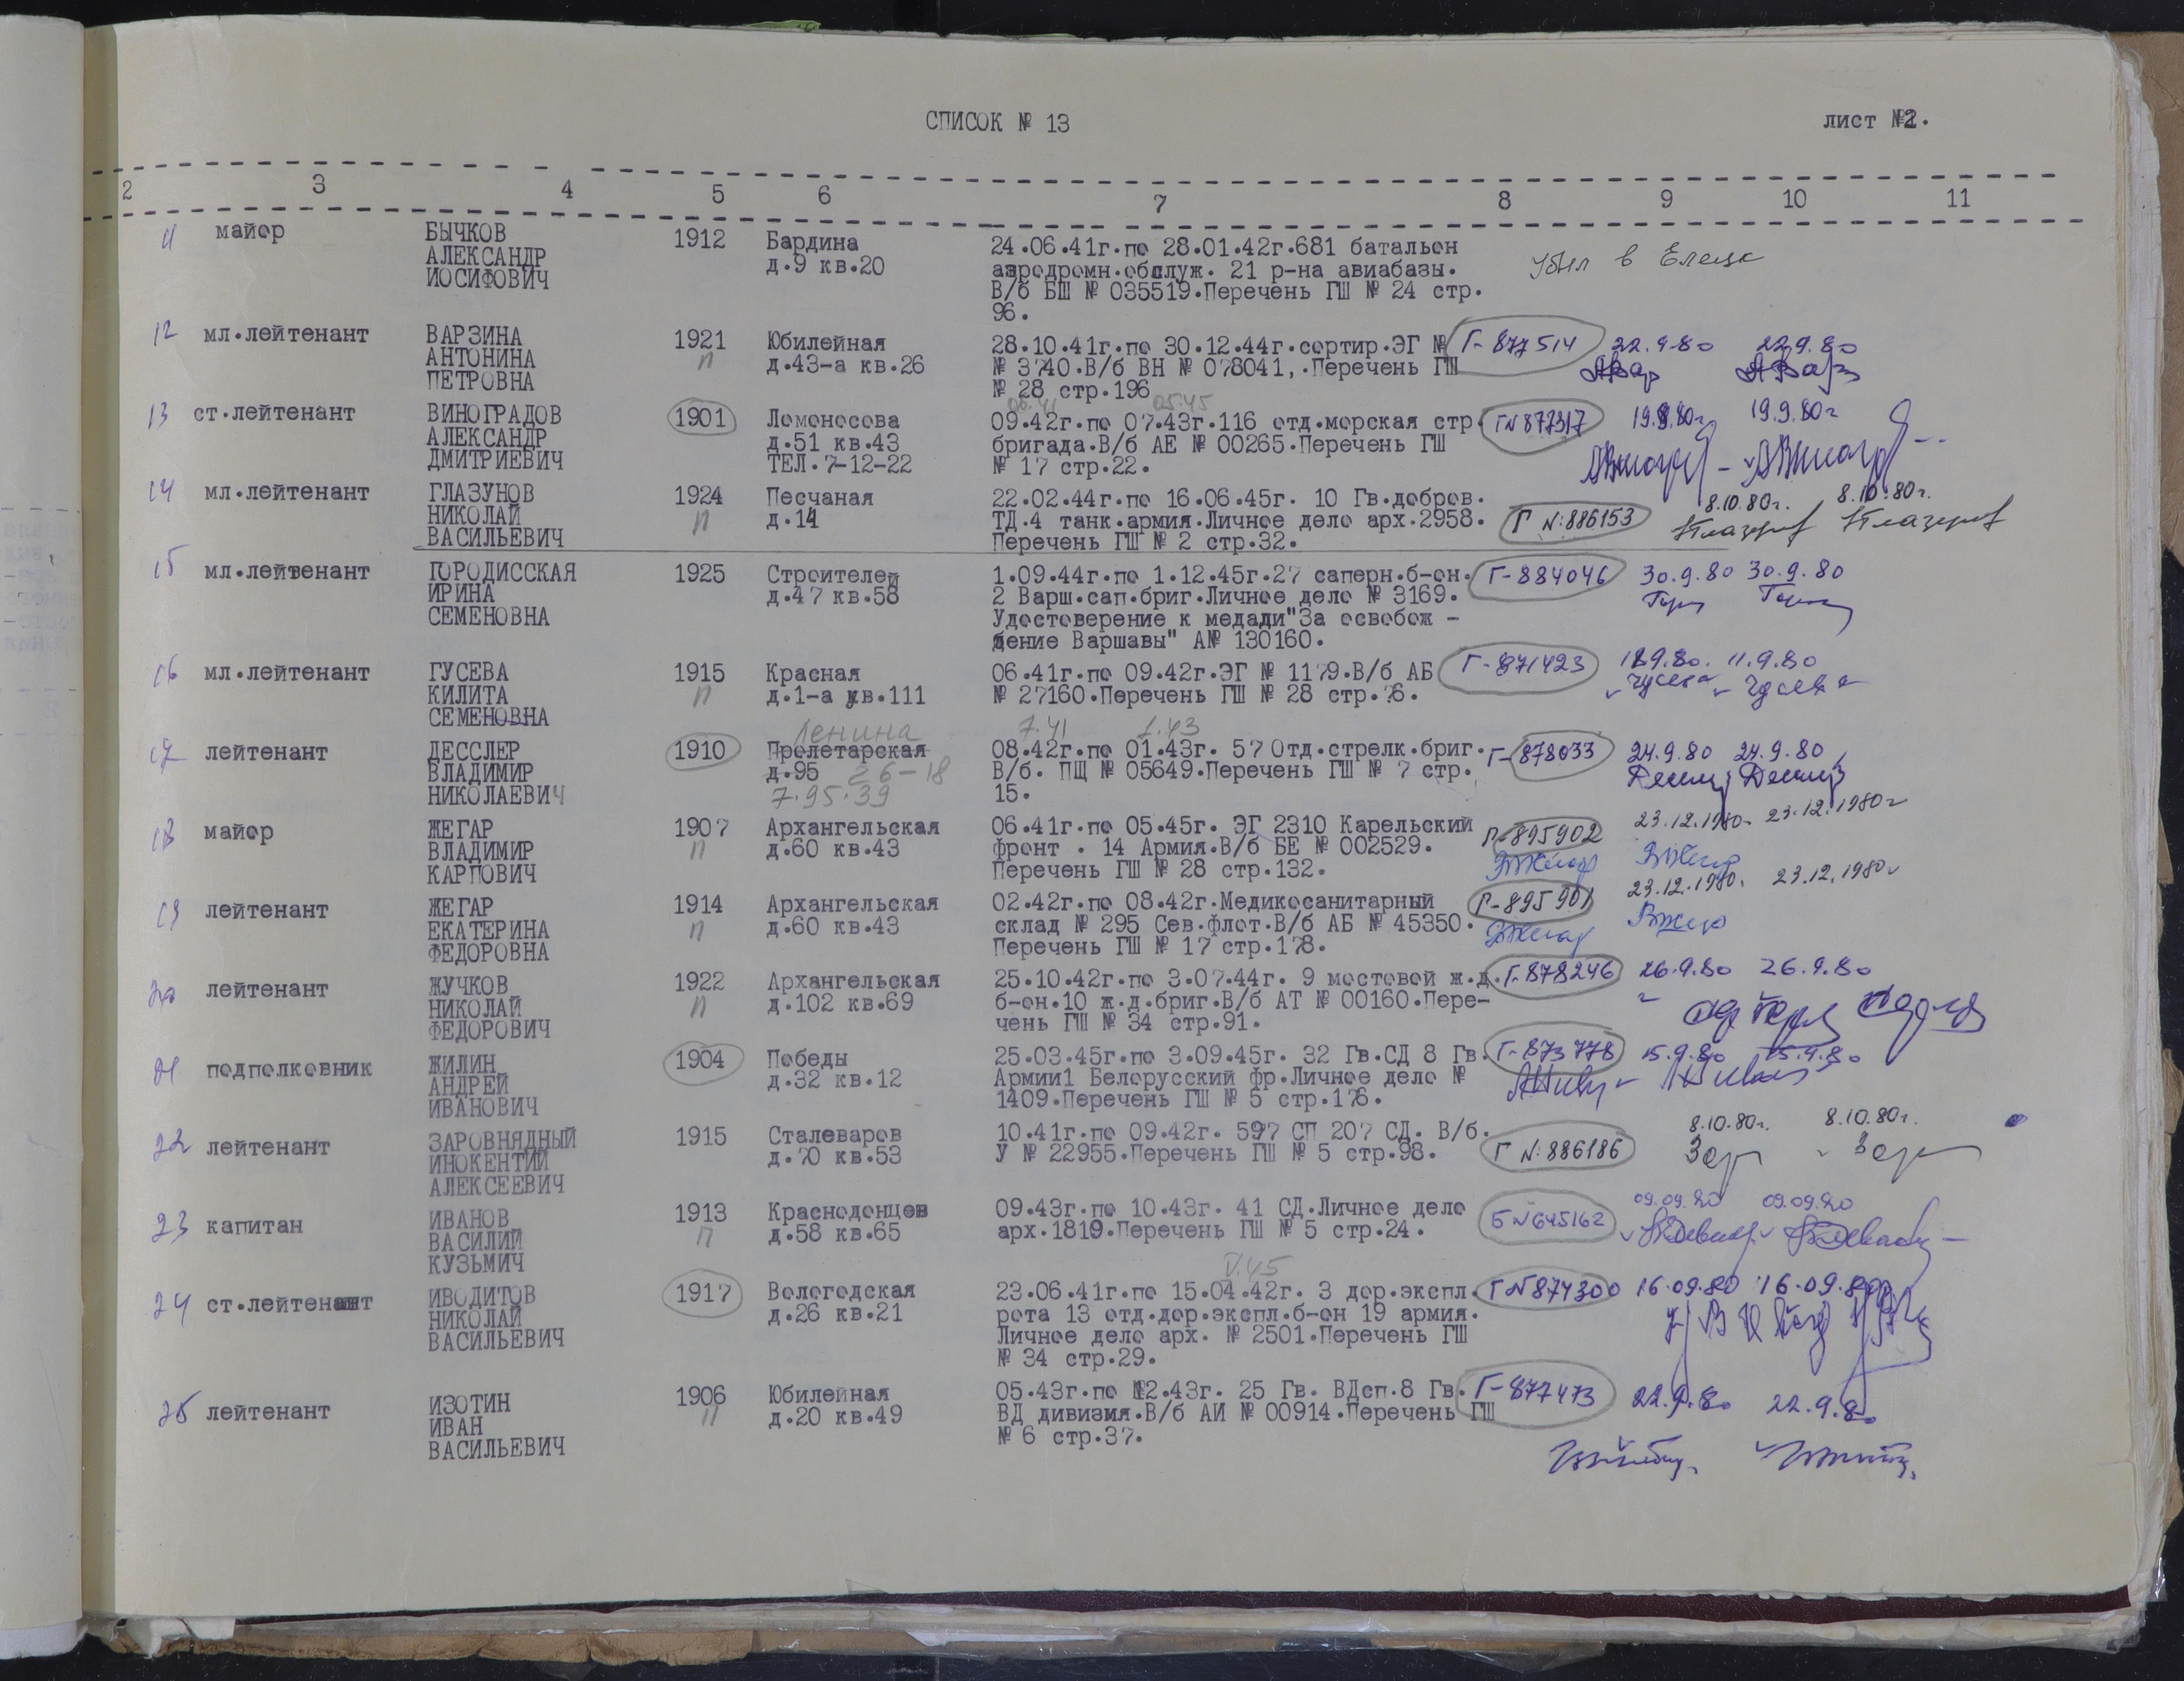 СПИСОК № 13
лист №2.
2 3 4 5 6 7 8 9 10 11
11 майор БЫЧКОВ 1912 Бардина 24.06.41г.по 28.01.42г.681 батальон убыл в Елецк
АЛЕКСАНДР д.9 кв.20 аэродромн.обслуж. 21 р-на авиабазы.
ИОСИФОВИЧ В/б БШ № 035519.Перечень ГШ № 24 стр.
96.
12 мл.лейтенант ВАРЗИНА 1921 Юбилейная 28.10.41г.по 30.12.44г.сортир.ЭГ № Г-877514 22.9.80 22.9.80
АНТОНИНА п д.43-а кв.26 № 3740.В/б ВН № 078041,.Перечень ГШ
ПЕТРОВНА № 28 стр.196
06.41 05.45
13 ст.лейтенант ВИНОГРАДОВ 1901 Ломоносова 09.42г.по 07.43г.116 отд.морская стр. ГN877317 19.9.80г 19.9.80г
АЛЕКСАНДР д.51 кв.43 бригада.В/б АЕ № 00265.Перечень ГШ
ДМИТРИЕВИЧ ТЕЛ.7-12-22 № 17 стр.22.
14 мл.лейтенант ГЛАЗУНОВ 1924 Песчаная 22.02.44г.по 16.06.45г. 10 Гв.добров. 8.10.80г. 8.10.80г.
НИКОЛАЙ п д.14 ТД.4 танк.армия.Личное дело арх.2958. Г N:886153
ВАСИЛЬЕВИЧ Перечень ГШ № 2 стр.32.
15 мл.лейтенант ГОРОДИССКАЯ 1925 Строителей 1.09.44г.по 1.12.45г.27 саперн.б-он. Г-884046 30.9.80 30.9.80
ИРИНА д.47 кв.58 2 Варш.сап.бриг.Личное дело № 3169.
СЕМЕНОВНА Удостоверение к медали"За освобож -
дение Варшавы" А№ 130160.
16 мл.лейтенант ГУСЕВА 1915 Красная 06.41г.по 09.42г.ЭГ № 1179.В/б АБ Г-871423 11.9.80
КИЛИТА п д.1-а кв.111 № 27160.Перечень ГШ № 28 стр.76. Гусева Гусева
СЕМЕНОВНА
Ленина 7.41
17 лейтенант ДЕССЛЕР 1910 Пролетарская 08.42г.по 01.43г. 57 Отд.стрелк.бриг. Г-878033 24.9.80 24.9.80
ВЛАДИМИР д.95 26-18 В/б. ПЩ № 05649.Перечень ГШ № 7 стр.
НИКОЛАЕВИЧ 7.95.39 15.
18 майор ЖЕГАР 1907 Архангельская 06.41г.по 05.45г. ЭГ 2310 Карельский Г-895902 23.12.1980г 23.12.1980г
ВЛАДИМИР п д.60 кв.43 фронт . 14 Армия.В/б БЕ № 002529.
КАРПОВИЧ Перечень ГШ № 28 стр.132.
19 лейтенант ЖЕГАР 1914 Архангельская 02.42г.по 08.42г.Медикосанитарный Г-895901 23.12.1980г 23.12.1980г
ЕКАТЕРИНА п д.60 кв.43 склад № 295 Сев.флот.В/б АБ № 45350.
ФЕДОРОВНА Перечень ГШ № 17 стр.178.
20 лейтенант ЖУЧКОВ 1922 Архангельская 25.10.42г.по 3.07.44г. 9 мостовой ж.д. Г-878246 26.9.80 26.9.80
НИКОЛАЙ п д.102 кв.69 б-он.10 ж.д.бриг.В/б АТ № 00160.Пере-
ФЕДОРОВИЧ чень ГШ № 34 стр.91.
21 подполковник ЖИЛИН 1904 Победы 25.03.45г.по 3.09.45г. 32 Гв.СД 8 Гв. Г-873778 15.9.80 15.9.80
АНДРЕЙ д.32 кв.12 Армии1 Белорусский фр.Личное дело №
ИВАНОВИЧ 1409.Перечень ГШ № 5 стр.176.
22 лейтенант ЗАРОВНЯДНЫЙ 1915 Сталеваров 10.41г.по 09.42г. 597 СП 207 СД. В/б. 8.10.80г. 8.10.80г.
ИНОКЕНТИЙ д.70 кв.53 У № 22955.Перечень ГШ № 5 стр.98. Г N:886186
АЛЕКСЕЕВИЧ
23 капитан ИВАНОВ 1913 Краснодонцев 09.43г.по 10.43г. 41 СД.Личное дело Б N645162 09.09.80 09.09.80
ВАСИЛИЙ п д.58 кв.65 арх.1819.Перечень ГШ № 5 стр.24.
КУЗЬМИЧ
V.45
24 ст.лейтенант ИВОДИТОВ 1917 Вологодская 23.06.41г.по 15.04.42г. 3 дор.экспл. Г N874300 16.09.80 16.09.80
НИКОЛАЙ д.26 кв.21 рота 13 отд.дор.экспл.б-он 19 армия.
ВАСИЛЬЕВИЧ Личное дело арх. № 2501.Перечень ГШ
№ 34 стр.29.
25 лейтенант ИЗОТИН 1906 Юбилейная 05.43г.по 12.43г. 25 Гв. ВДсп.8 Гв. Г-877473 22.9.80 22.9.80
ИВАН п д.20 кв.49 ВД дивизмя.В/б АИ № 00914.Перечень ГШ
ВАСИЛЬЕВИЧ № 6 стр.37.